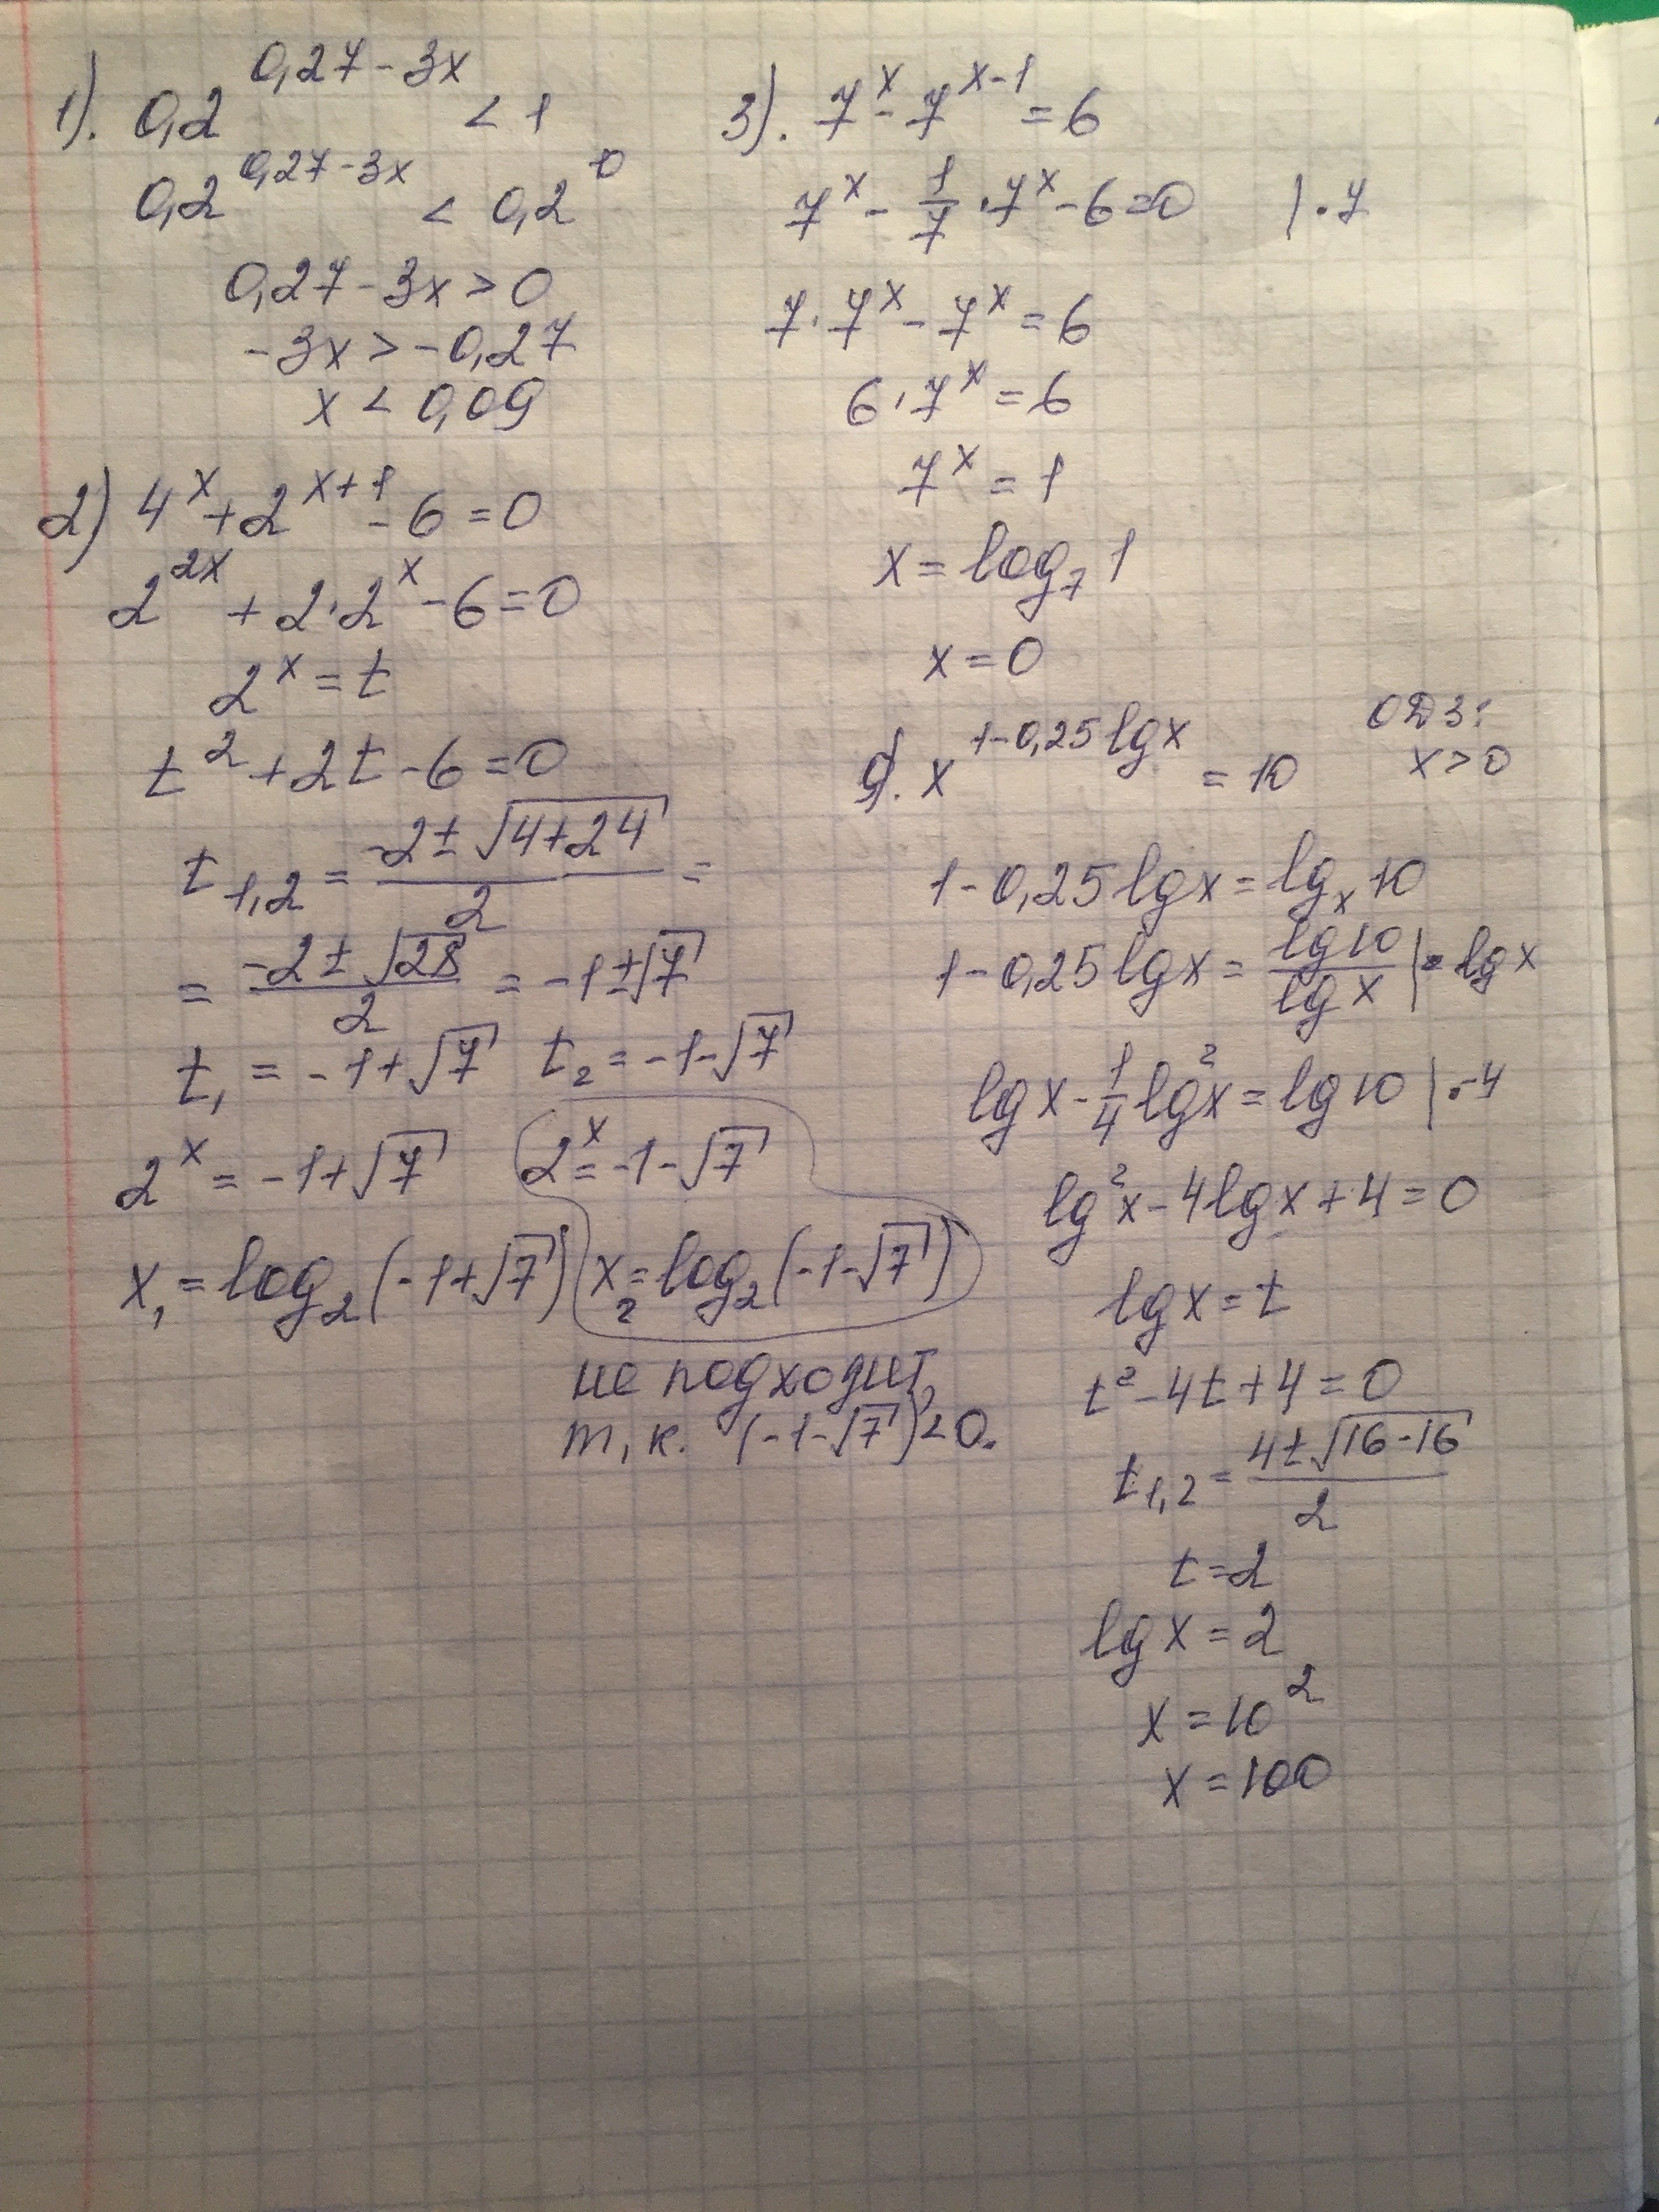 1). 0,2^(0,27-3x) < 1
0,2^(0,27-3x) < 0,2^0
0,27-3x > 0
-3x > -0,27
x < 0,09
2) 4^x + 2^(x+1) - 6 = 0
2^(2x) + 2·2^x - 6 = 0
2^x = t
t^2 + 2t - 6 = 0
t_1,2 = (-2 ± √(4+24))/2 =
= (-2 ± √28)/2 = -1 ± √7
t_1 = -1+√7 t_2 = -1-√7
2^x = -1+√7 2^x = -1-√7
x_1 = log_2(-1+√7) x_2 = log_2(-1-√7)
не подходит,
т, к. (-1-√7) < 0.
3). 7^x - 7^(x-1) = 6
7^x - 1/7 · 7^x - 6 = 0 | · 7
7 · 7^x - 7^x = 6
6 · 7^x = 6
7^x = 1
x = log_7 1
x = 0
x^(1-0,25 lg x) = 10 ОДЗ:
x > 0
1 - 0,25 lg x = lg_x 10
1 - 0,25 lg x = lg 10 / lg x | · lg x
lg x - 1/4 lg^2 x = lg 10 | · -4
lg^2 x - 4 lg x + 4 = 0
lg x = t
t^2 - 4t + 4 = 0
t_1,2 = (4 ± √(16-16))/2
t = 2
lg x = 2
x = 10^2
x = 100